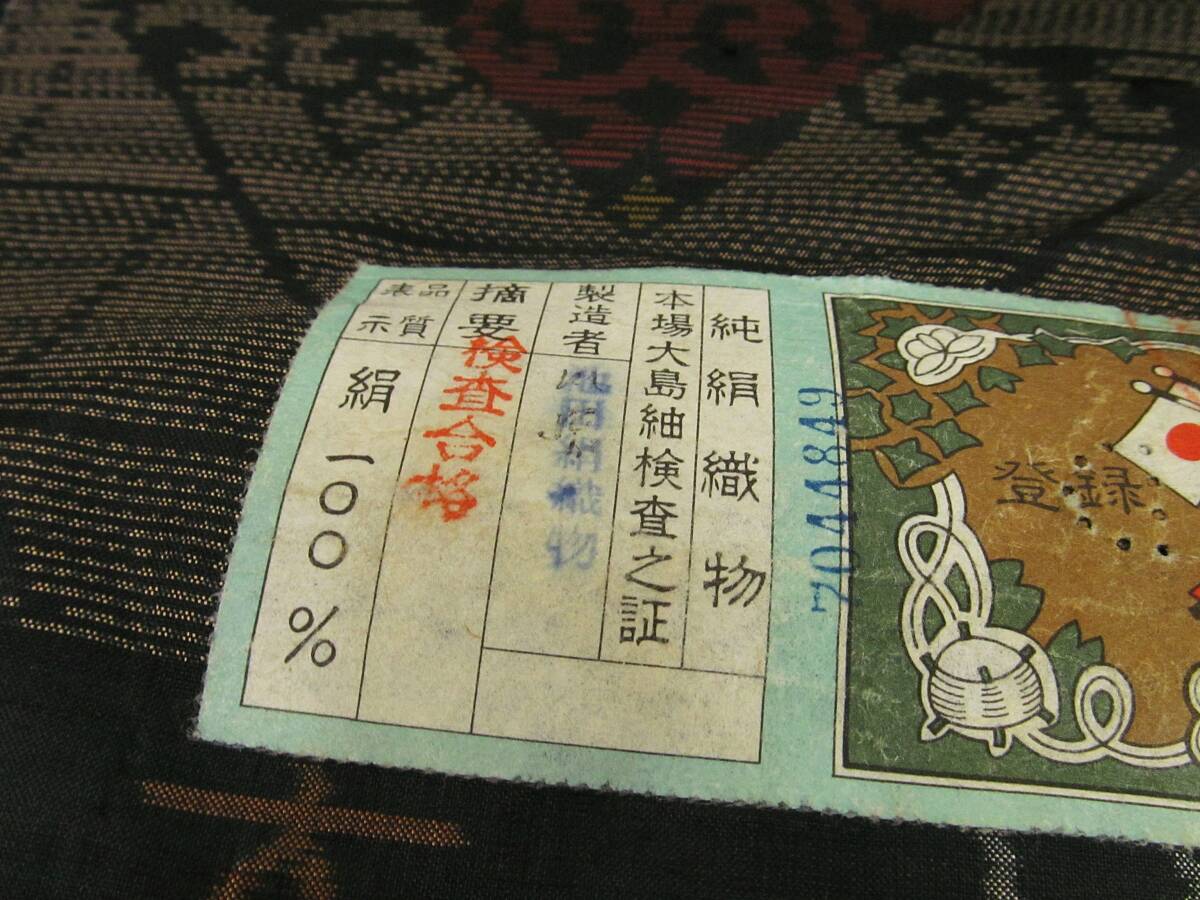 純絹織物
本場大島紬検査之証
製造者
絹織物
摘要
検査合格
品質
表示
絹一〇〇%
7044849
登録